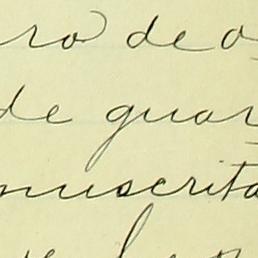 ro de o
de guar
nuscrita